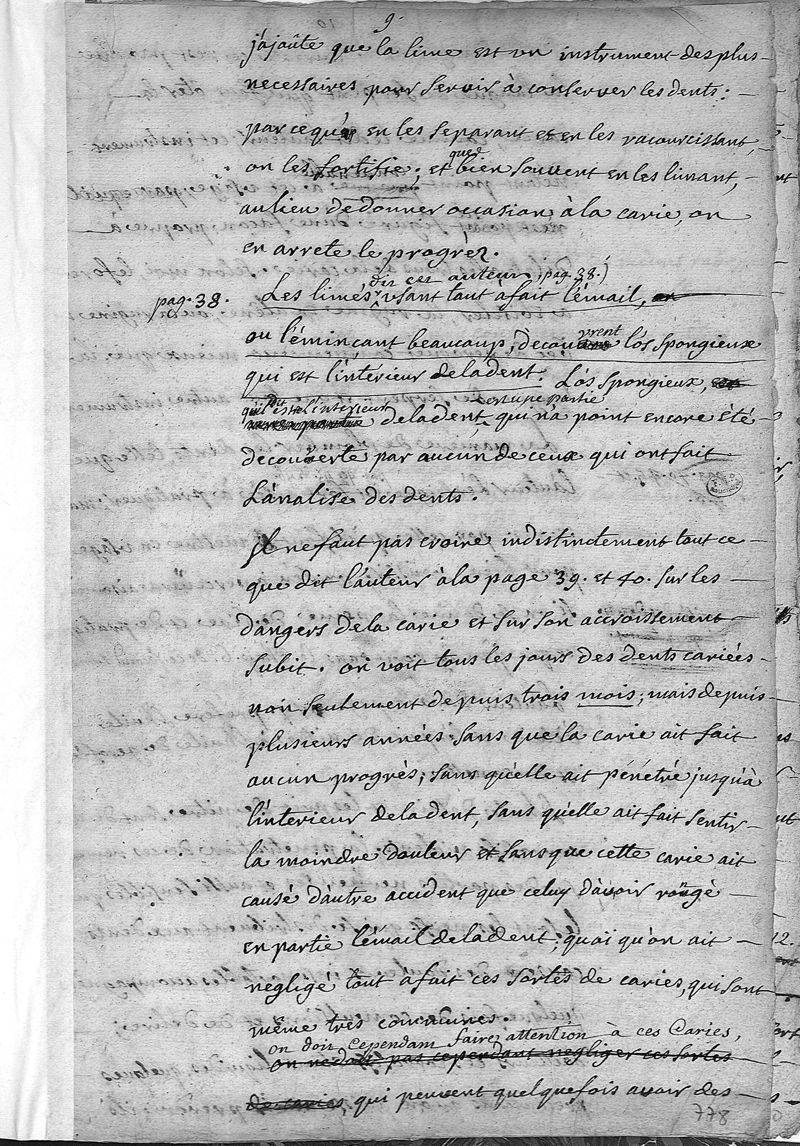 9.
j'ajoûte que la lime est un instrument des plus
necessaires pour servir à conserver les dents:
parcequ'
en les separant et en les racourcissant,
on les fortifie; et que bien souvent en les limant,
au lieu de donner occasion à la carie, on
en arrete le progréz.
dit cet auteur, pag. 38.)
pag. 38. Les limés usant tout àfait l'émail,
ou l'éminçant beaucoup, decouvrent l'os spongieux
qui est l'intérieur de la dent. L'os spongieux,
qu'il dit est l'interieur de la dent est une partie qui n'a point encore été
decouverte par aucun de ceux qui ont fait
L'analise des dents.
Il ne faut pas croire indistinctement tout ce
que dit l'auteur à la page 39. et 40. sur les
dangers de la carie et sur son accroissement
subit. on voit tous les jours des dents cariées
non seulement depuis trois mois; mais depuis
plusieurs années sans que la carie ait fait
aucun progrés; sans qu'elle ait pénétré jusqu'à
l'interieur de la dent, sans qu'elle ait fait sentir
la moindre douleur et sans que cette carie ait
causé d'autre accident que celuy d'avoir rongé
en partie l'émail de la dent; quoi qu'on ait
negligé tout àfait ces sortes de caries, qui sont
même tres communes.
on doit cependant faire attention à ces Caries,
on ne doit pas cependant negliger ces sortes
de caries, qui peuvent quelquefois avoir des
778